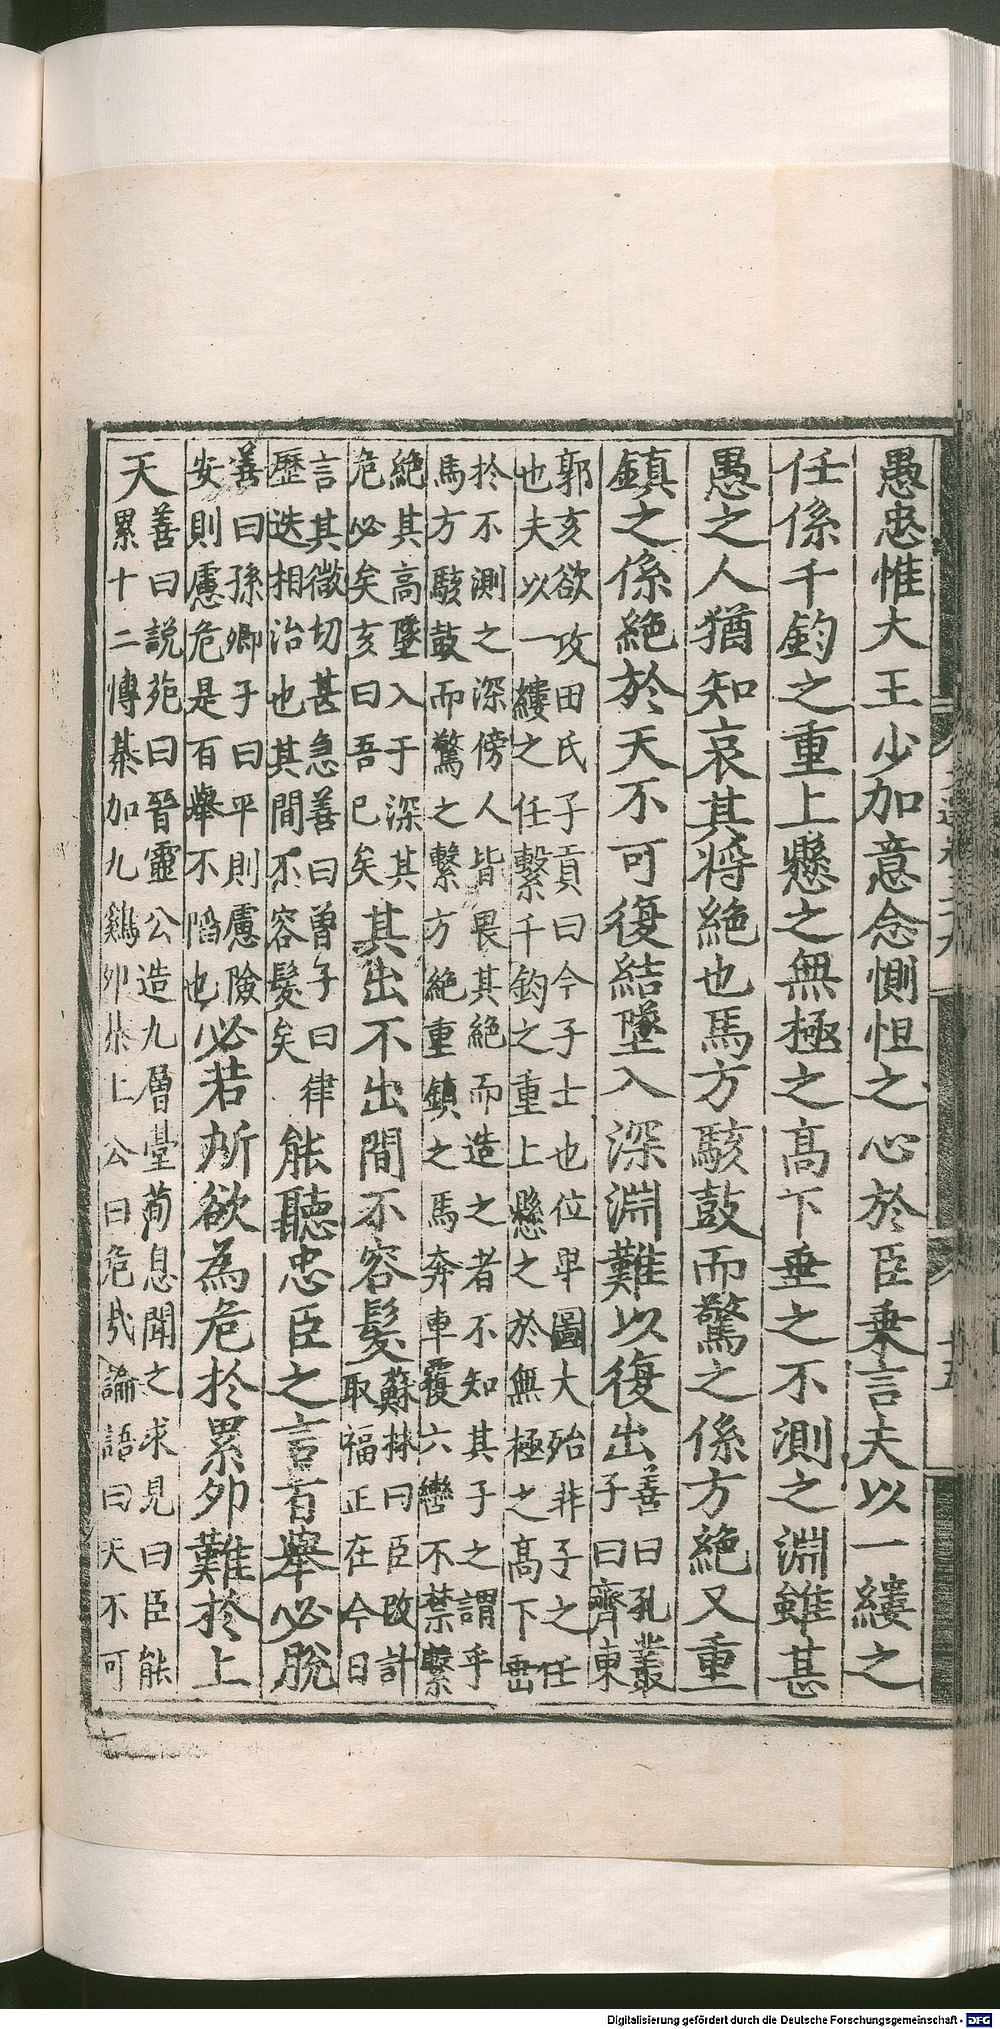 愚忠惟大王少加意念惻怛之心於臣乗言夫以一縷之
任係千鈞之重上懸之無極之高下垂之不測之淵雖甚
愚之人猶知哀其將絶也馬方駭鼓而驚之係方絶又重
鎮之係絶於天不可復結墜入深淵難以復出善曰孔叢
子曰齊東
郭亥欲攻田氏子貢曰今子士也位卑圖大殆非子之任
也夫以一縷之任繫千鈞之重上懸之於無極之高下垂
於不測之深傍人皆畏其絶而造之者不知其子之謂乎
馬方駭鼓而驚之繫方絶重鎮之馬奔車覆六轡不禁繫
絶其高墜入于深其
危必矣亥曰吾已矣
其出不出間不容髮
蘇林曰臣改計
取福正在今日
言其微切甚急善曰曽子曰律
歷迭相治也其間不容髮矣
能聽忠臣之言百舉必脫
善曰孫卿子曰平則慮險
安則慮危是百舉不陷也
必若所欲為危於累卵難於上
天
善曰說苑曰晉靈公造九層臺荀息聞之求見曰臣能
累十二博棊加九鷄卵其上公曰危哉論語曰天不可
Digitalisierung gefördert durch die Deutsche Forschungsgemeinschaft - DFG